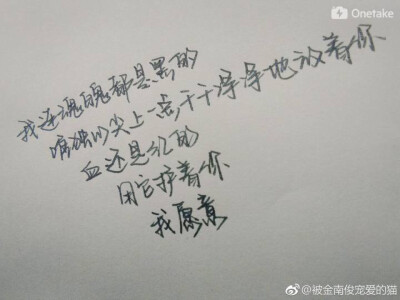 Onetake
我连魂魄都是黑的
唯独心尖上一点,干干净净地放着你
血还是红的
用它护着你
我愿意
@被金南俊宠爱的猫